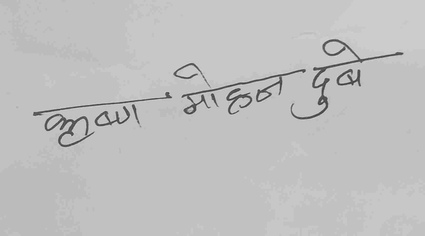 कृष्ण मोहन दुबे